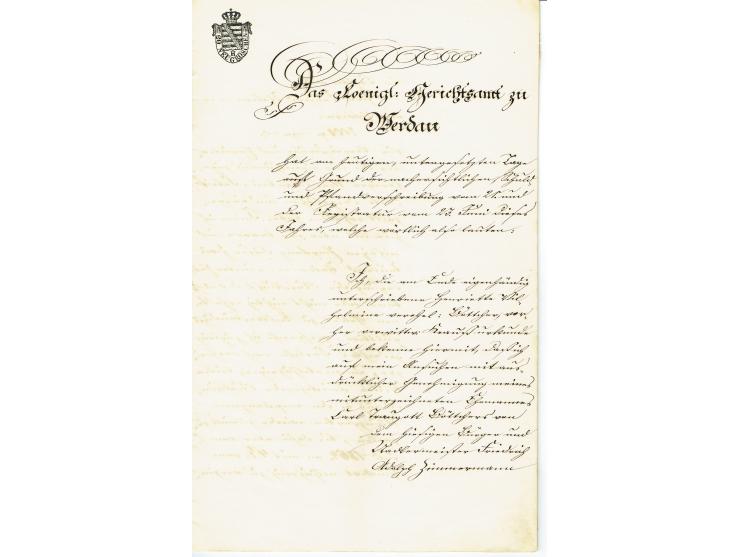 Das Koenigl: Gerichtsamt zu
Werdau
hat am heutigen, untengesetzten Tage
auf Grund der nachersichtlichen Schuld
und Pfandverschreibung vom 21. und
der Registratur vom 23. Juni dieses
Jahres, welche wörtlich also lauten:
Ich, die am Ende eigenhändig
unterschriebene Henriette Wil-
helmine verehel: Böttcher, vor-
her verwittw. Krauß urkunde
und bekenne hiermit, daß ich
auf mein Ansuchen mit aus-
drücklicher Genehmigung meines
mitunterzeichneten Ehemannes
Carl Traugott Böttchers von
dem hiesigen Bürger und
Nadlermeister Friedrich
Adolph Zimmermann